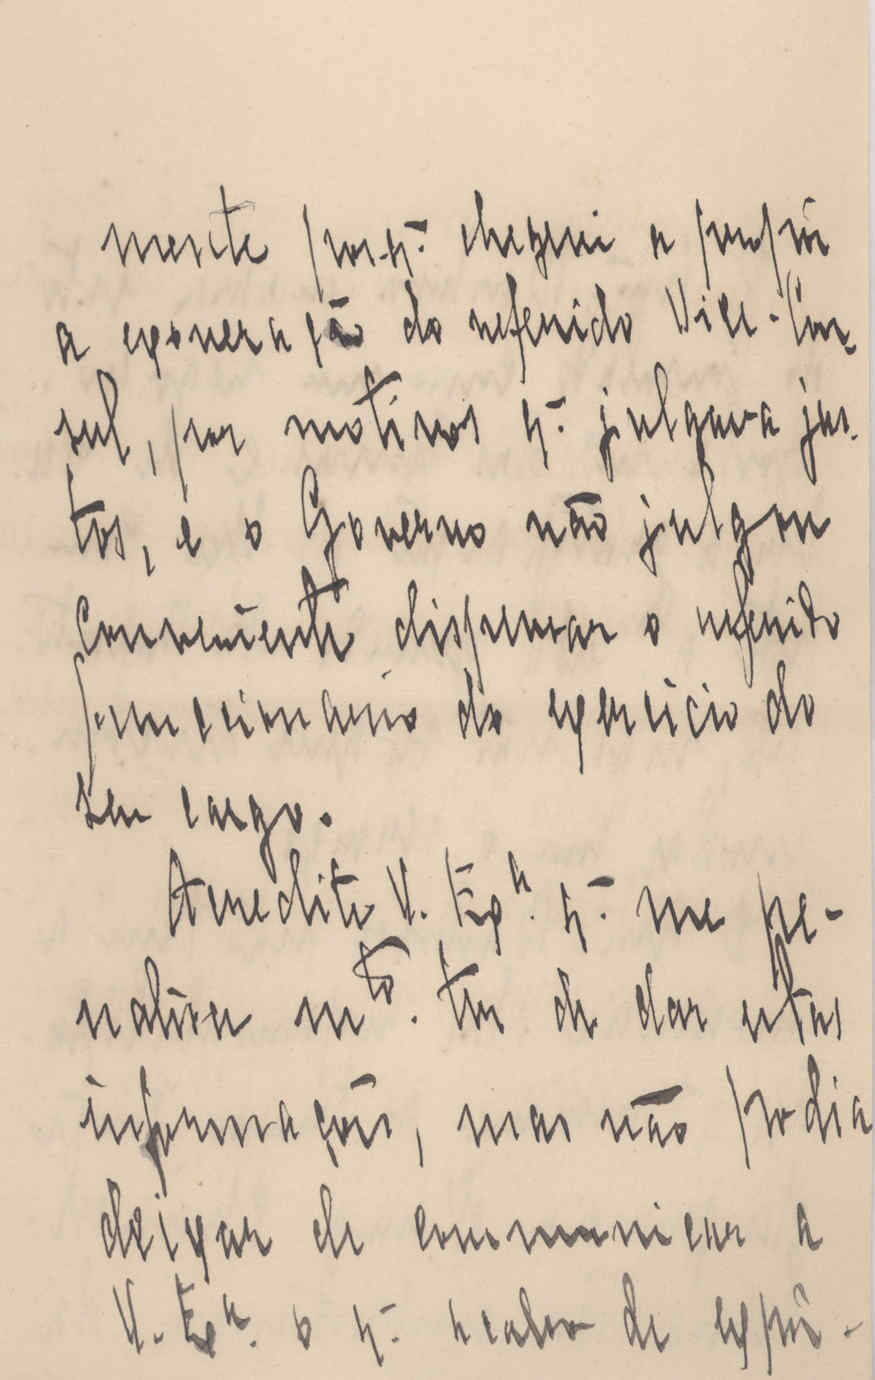 mente porq. cheguei a propôr
a exoneração do referido Vice-Con-
sul, por motivos q. julgava jus-
tos, e o Governo não julgou
conveniente dispensar o referido
funccionario do exercicio do
seu cargo.
Acredite V. Exª. q. me pe-
nalisou mto. ter de dar estas
informações, mas não podia
deixar de communicar a
V. Exª. o q. acabo de expôr-